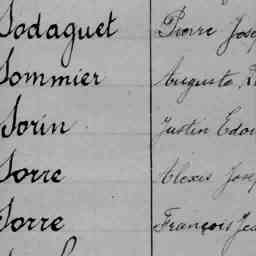 Sodaguet Pierre Jose
Sommier Auguste
Sorin Justin Edou
Sorre Alexis Josep
Sorre François Jea